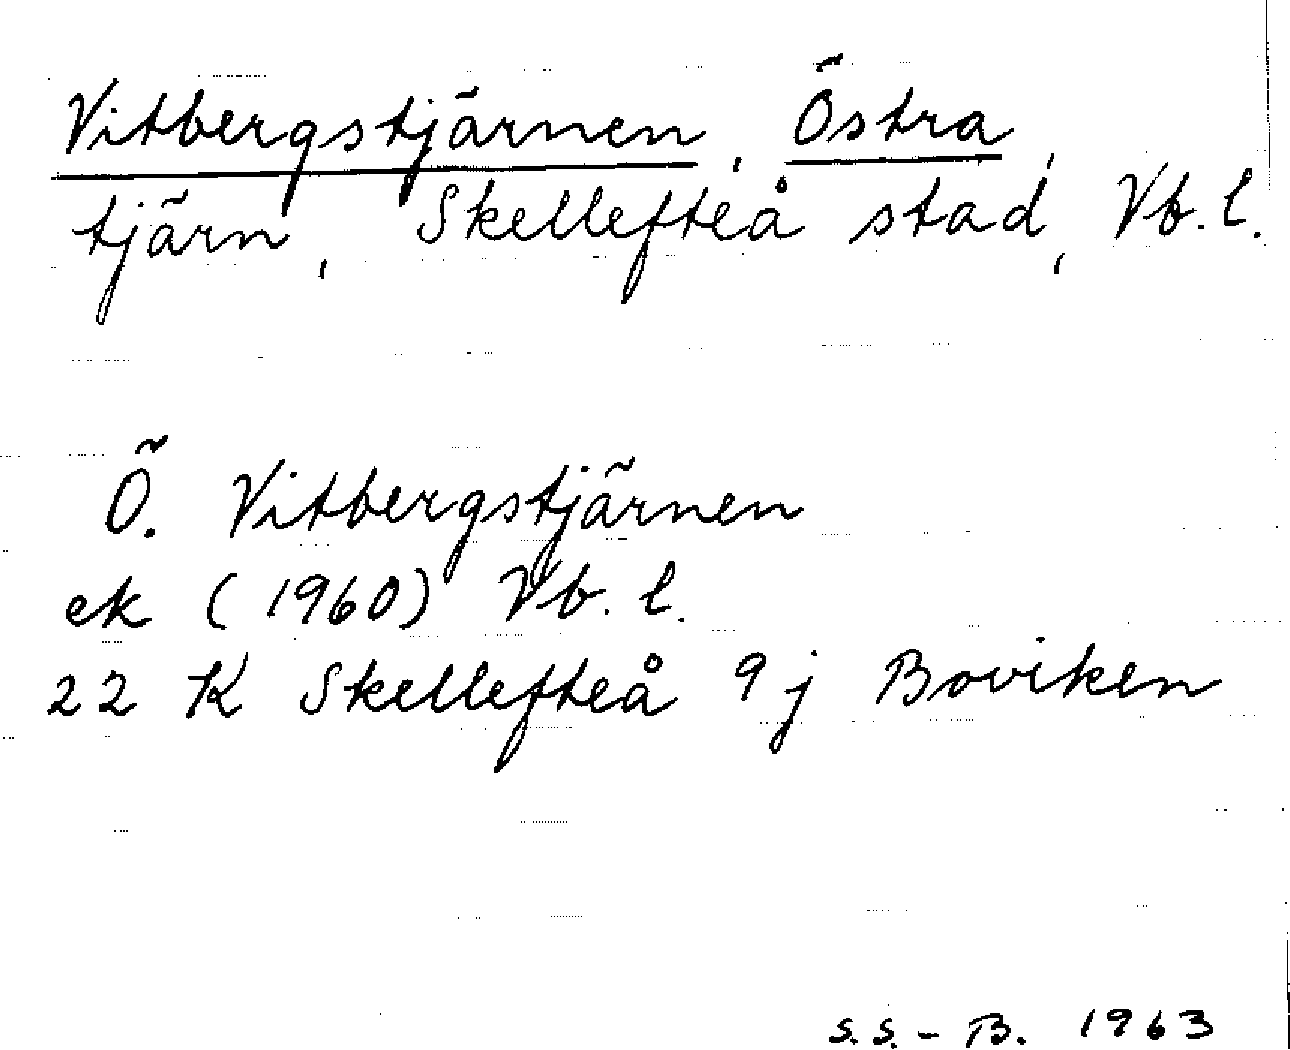 Vitbergstjärnen, Östra,
tjärn, Skellefteå stad, Vb. l.
Ö. Vitbergstjärnen
ek (1960) Vb. l.
22 K Skellefteå 9 j Boviken
S.S.-B. 1963